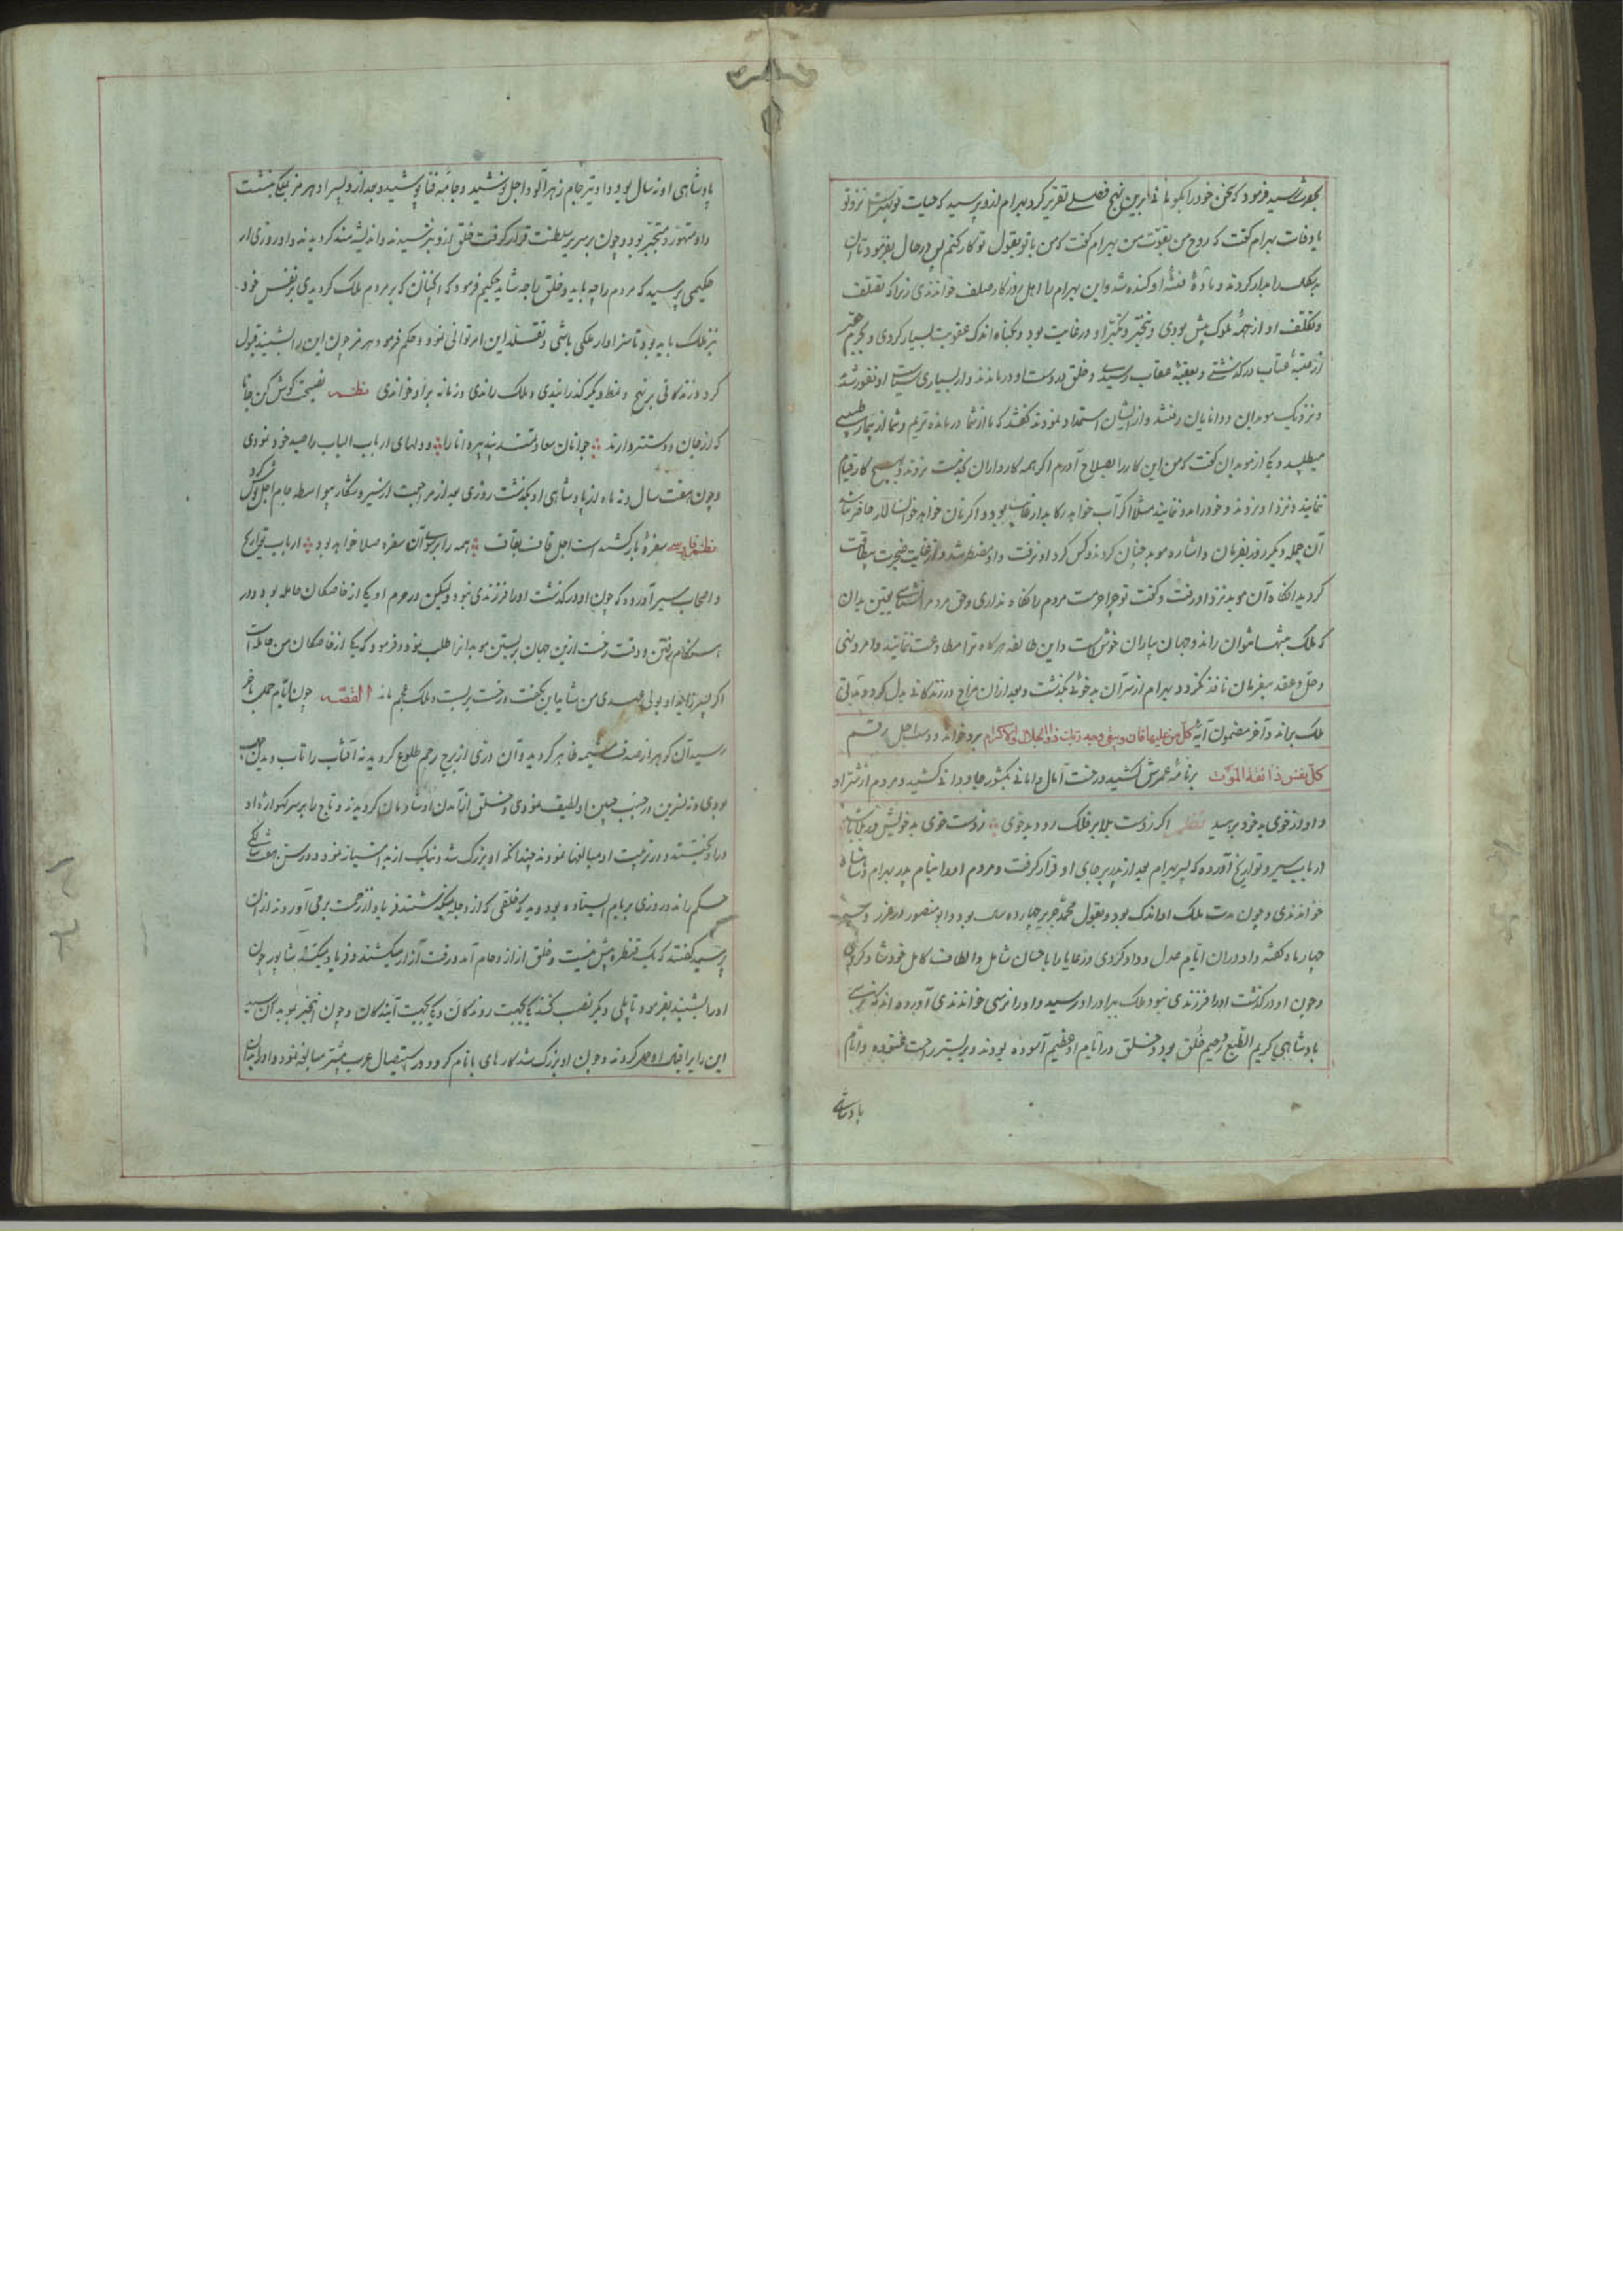 بحضورش رسید فرمود که سخن خود را بگو مانی برین نهج فصلی تقریر کرد بهرام ازو پرسید که حیات تو بهتر است نزد تو
یا وفات بهرام گفت که روح من بقوّت من بهرام گفت که من با تو بقول تو کار کنم پس در حال بفرمود تا آن
را بدار کردند و مادهٔ فتنه او کنده شد و این بهرام را اهل روزگار صلف خواندندی زیرا که تصلف
و تکلف او از همه ملوک بیش بودی و تبختر و تکبر او در غایت بود و بگناه اندک عقوبت بسیار کردی و بجرم حقیر
از عتبهٔ عتاب درگذشتی و بعقبهٔ عقاب رسیدی و خلق در دست او درماندند و از بسیاری سیاست او نفور شدند
و نزدیک موبدان و دانایان رفتند و از ایشان استمداد نمودند گفتند که ما از شما درمانده تریم و شما از بیمار طبیب
میطلبید و یکی از موبدان گفت که من این کار را بصلاح آورم اگر همه کارداران بخدمت نروند و بهیچ کار قیام
ننمایند و نزد او نروند و خود را بدو ننمایند مثلا اگر آب خواهد رکابدار غایب بود و اگر نان خواهد خوانسالار حاضر نباشد
آن جمله دیگر روز بفرمان و اشاره موبد چنان کردند و کس گرد او نرفت و او مضطر شد و از غایت ضجرت بیطاقت
گردید آنگاه آن موبد نزد او رفت و گفت تو چرا حرمت مردم را نگاه نداری و حق مردم نشناسی یقین بدان
که ملک بتنها نتوان راند و جهان بیاران خوش است و این طایفه هرگاه ترا مطاوعت ننمایند و امر و نهی
و حل و عقد بفرمان نافذ نگردد بهرام از سر آن بدخوئی بگذشت و بعد از آن مزاح در زندگانی بدل کرد و مدتی
ملک براند و آخر مضمون آیهٔ کل من علیها فان و یبقی وجه ربک ذو الجلال و الاکرام برو خواند و دست اجل رقم
کل نفس ذائقة الموت برنامهٔ عمرش کشید و رخت آمال و امانی بکشور جاودانی کشید و مردم از شر او
و او از خوی بد خود برهید نظم اگر ز دست بلا بر فلک رود بدخوی ز دست خوی بد خویش در بلا باشد
ارباب سیر و تواریخ آورده که پسر بهرام بعد از پدر بر جای او قرار گرفت و مردم او را بنام پدر بهرام شاه
خواندندی و چون مدت ملک او اندک بود و بقول محمد جریر چهارده سال بود و ابو منصور در غرر و سیر
چهار ماه گفته و او در آن ایام عدل و داد کردی و رعایا را باحسان شامل و الطاف کامل خود شاد کردی
و چون او درگذشت او را فرزندی نبود و ملک ببرادر او رسید و او را نرسی خواندندی آورده اند که نرسی
پادشاهی کریم الطبع و رحیم خلق بود و خلق در ایام او عظیم آسوده بودند و بر بستر راحت غنوده و ایام
پادشاهی
پادشاهی او نه سال بود و او نیز جام زهرآلود اجل نوشید و جامهٔ فنا پوشید و بعد از و پسر او هرمز بملک بنشست
و او متهور و متجبر بود و چون بر سریر سلطنت قرار گرفت خلق ازو بترسیدند و اندیشه مند گردیدند و او روزی از
حکیمی پرسید که مردم را چه باید و خلق را چه شاید حکیم فرمود که آنچنان که بر مردم ملک گردیدی بر نفس خود
نیز ملک باید بود تا سزاوار ملکی باشی و تقلد این امر توانی نمود و حکم فرمود هرمز چون این را بشنید قبول
کرد و زندگانی بر نهج و نمط دیگر گذرانیدی و ملک راندی و زمانه برو خواندی نظم نصیحت گوش کن جانا
که از جان دوستتر دارند جوانان سعادتمند پند پیر دانا را و دلهای ارباب الباب را صید خود نمودی
و چون هفت سال و نه ماه از پادشاهی او بگذشت روزی بعد از مراجعت از سیر و شکار بواسطه جام اجل نوش کرد
نظم فارسی سفرهٔ باز کشیده است اجل قاف بقاف همه را بر سر آن سفره صلا خواهد بود ارباب تواریخ
و اصحاب سیر آورده که چون او درگذشت او را فرزندی نبود و لیکن در حرم او یکی از خاصگان حامله بود و در
هنگام رفتن و وقت رخت ازین جهان بربستن موبدان را طلب نمود و فرمود که یکی از خاصگان من حامله است
اگر پسر زاید او بولی عهدی من شاید این بگفت و رخت بربست و ملک عجم ماند القصّه چون ایام حمل بآخر
رسید آن گوهر از صدف مشیمه ظاهر گردید و آن دری از برج رحم طلوع کرد و بدر آفتاب را تاب
بودی و نه نسرین در جنب جبین او لطیف نمودی و خلق از آمدن او شادمان گردیدند و تاج را بر سر گهوارهٔ او
درآویختند و در تربیت او مبالغها نمودند چندانکه او بزرگ شد و نیک از بد امتیاز نمود و در سن هفت سالگی
حکم راند و روزی بر بام ایستاده بود دید که خلقی که از دجله میگذشتند فریاد از زحمت برمی آوردند از آن
پرسید گفتند که یک قنطره بیش نیست و خلق از ازدحام آمد و رفت آزار میکشند و فریاد میکنند شاپور چون
او را بشنید بفرمود تا پلی دیگر نصب کنند یکی بجهت روندگان و یکی بجهت آیندگان و چون این خبر بموبدان رسید
این را بر اقبال او حمل کردند و چون او بزرگ شد کارهای با نام کرد و در استیصال عرب بیشتر مبالغه نمود و او را